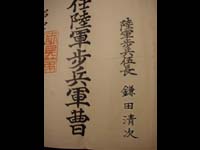 陸軍歩兵伍長 鎌田清次
任陸軍歩兵軍曹